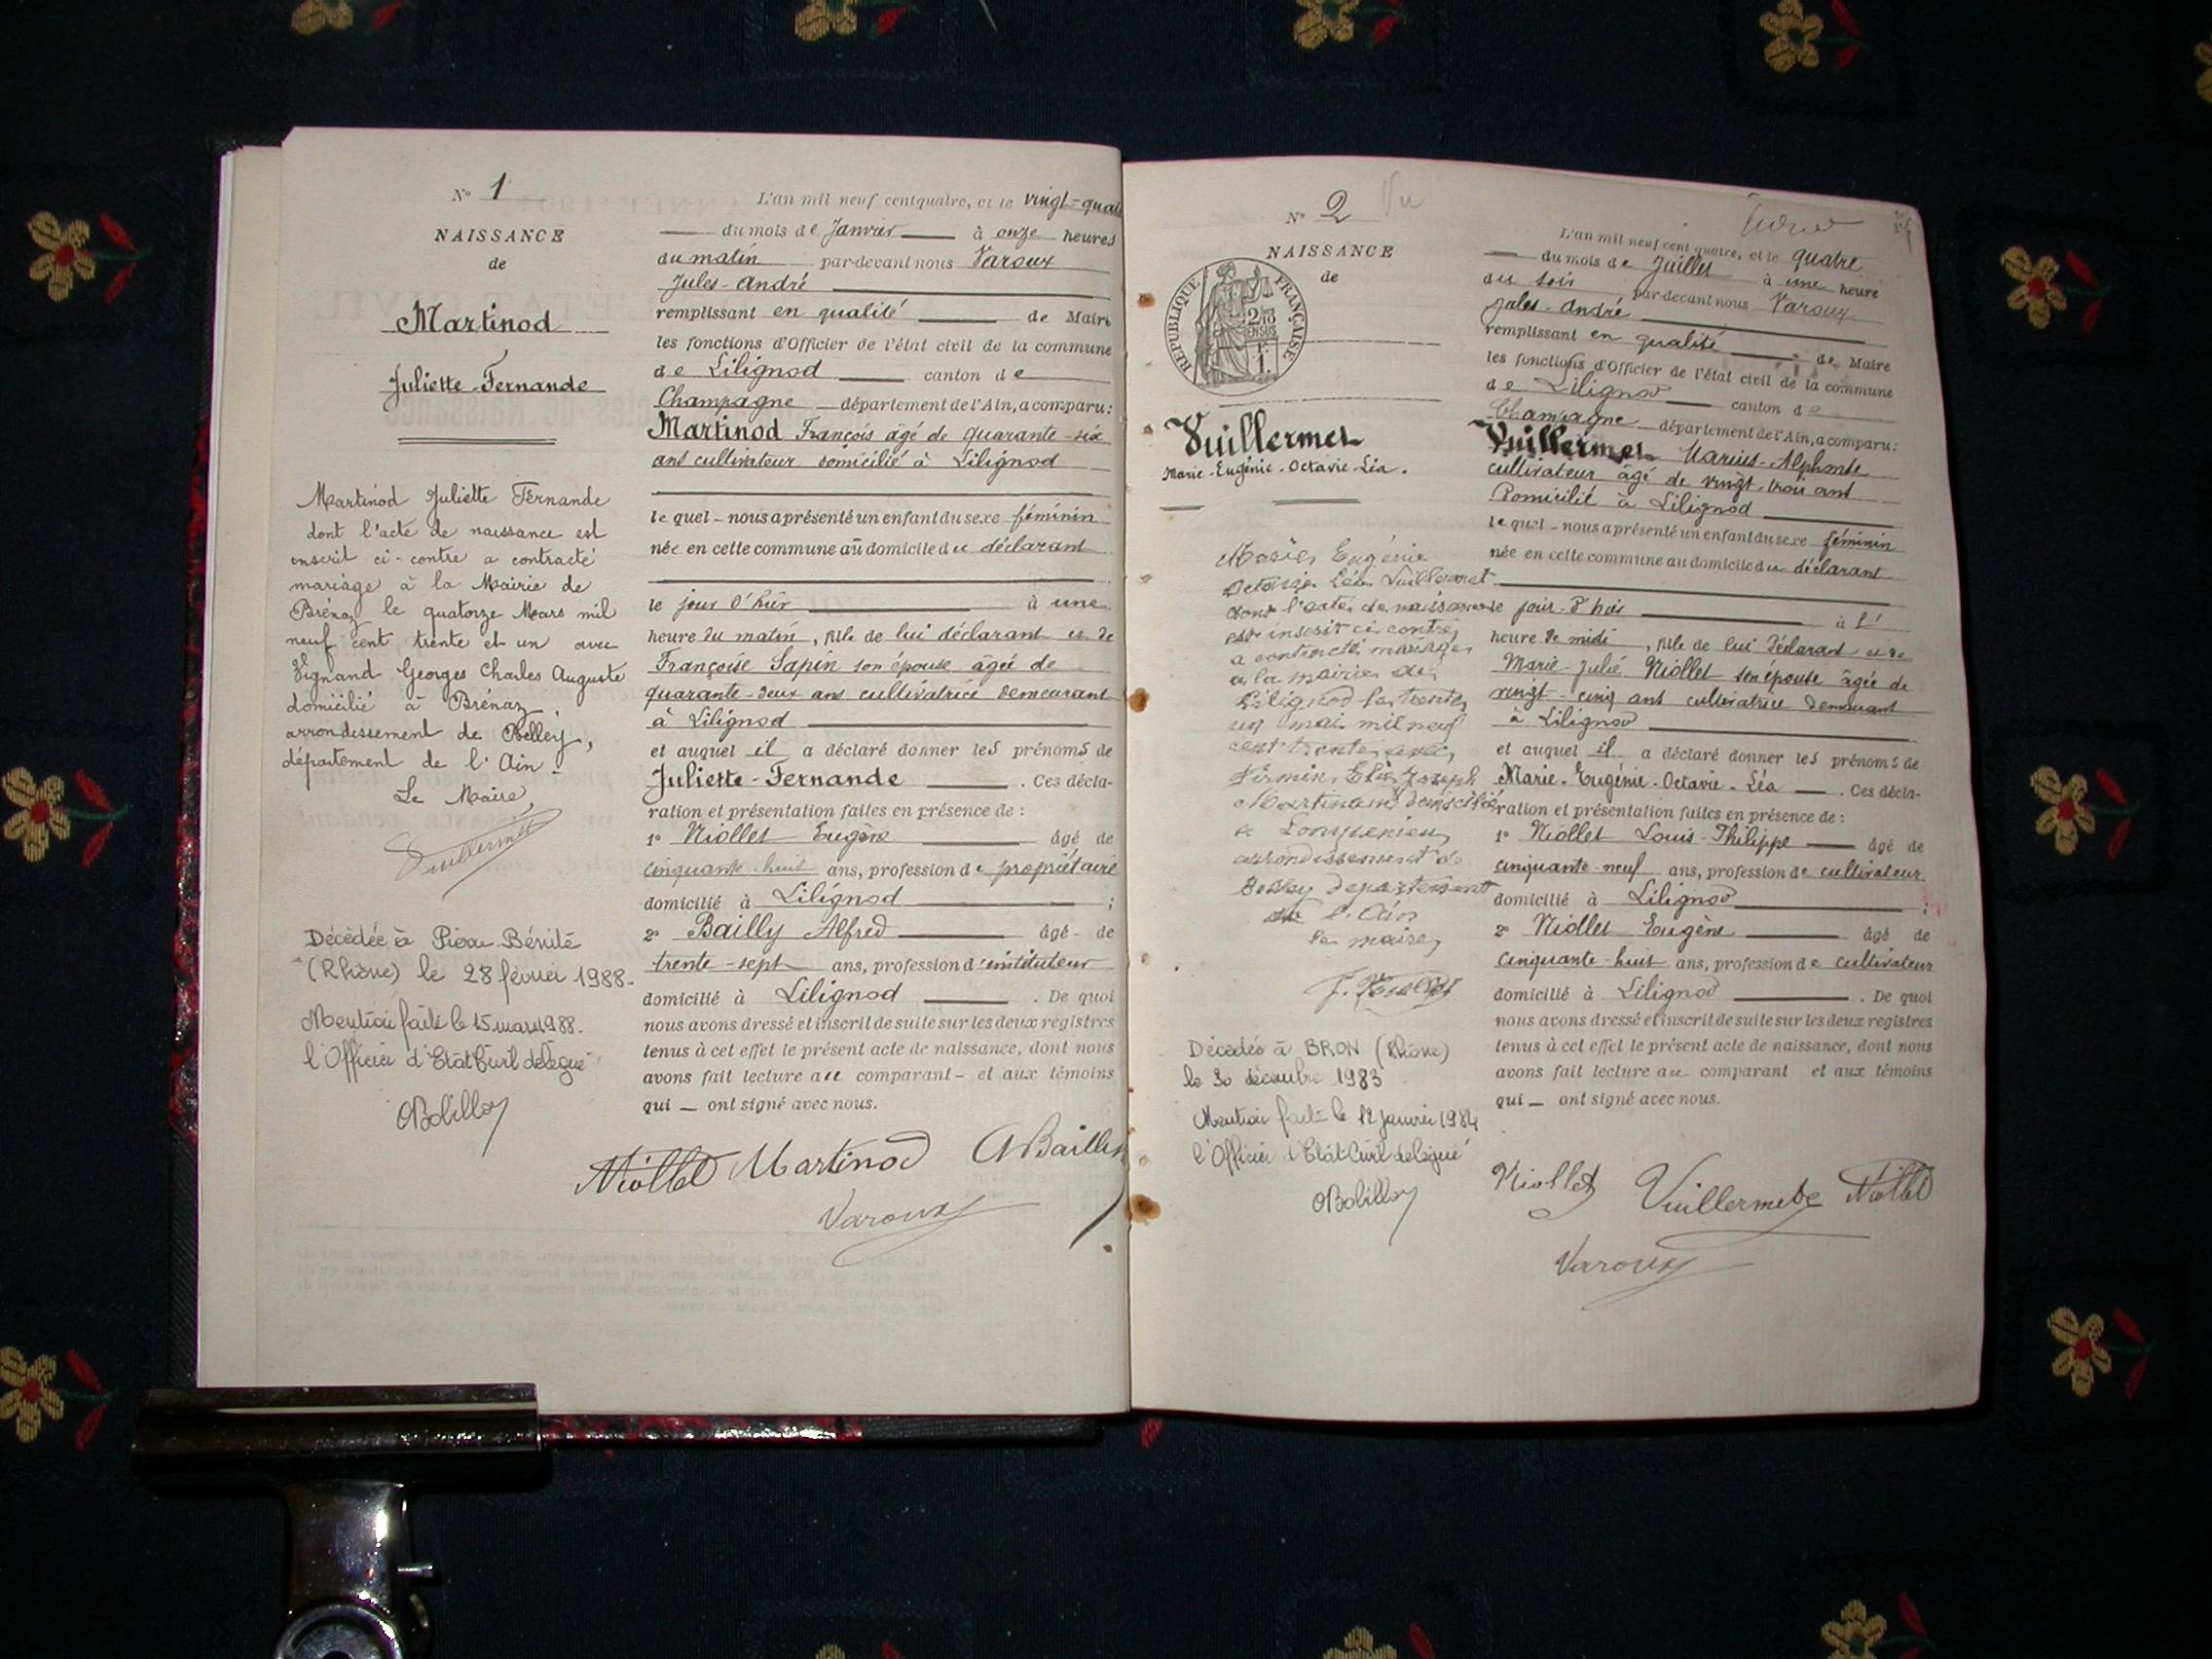 N° 1
NAISSANCE
de
Martinod
Juliette-Fernande
Martinod Juliette Fernande
dont l'acte de naissance est
inscrit ci-contre a contracté
mariage à la Mairie de
Brénaz le quatorze Mars mil
neuf cent trente et un avec
Georges Charles Auguste
domicilié à Brénaz,
arrondissement de Belley,
département de l'Ain -
Le Maire,
Vuillermet
Décédée à Pierre-Bénite
(Rhône) le 28 février 1988.
Mention faite le 15 mars 1988.
l'Officier d'Etat Civil délégué
L'an mil neuf cent quatre, et le vingt-quatre
du mois de Janvier à onze heures
du matin par-devant nous Varoux
Jules-André
remplissant en qualité de Maire
les fonctions d'Officier de l'état civil de la commune
de Lilignod canton de
Champagne département de l'Ain, a comparu:
Martinod François âgé de quarante-six
ans cultivateur domicilié à Lilignod
lequel - nous a présenté un enfant du sexe féminin
née en cette commune au domicile du déclarant
le jour d'hier à une
heure du matin, fille de lui déclarant et de
Françoise Sapin son épouse âgée de
quarante-deux ans cultivatrice demeurant
à Lilignod
et auquel il a déclaré donner les prénoms de
Juliette-Fernande. Ces décla-
ration et présentation faites en présence de :
1° Niollet Eugène âgé de
cinquante-huit ans, profession de propriétaire
domicilié à Lilignod ;
2° Bailly Alfred âgé - de
trente-sept ans, profession d'instituteur
domicilié à Lilignod. De quoi
nous avons dressé et inscrit de suite sur les deux registres
tenus à cet effet le présent acte de naissance, dont nous
avons fait lecture au comparant - et aux témoins
qui — ont signé avec nous.
Niollet Martinod A Bailly
Varoux
N° 2 Vu
NAISSANCE
de
RÉPUBLIQUE FRANÇAISE
2/10
EN SUS
1F.
Vuillermet
Marie-Eugénie-Octavie-Léa.
Marie Eugénie
Octavie Léa Vuillermet
dont l'acte de naissance
est inscrit ci contre
a contracté mariage
a la mairie de
Lilignod le trente
un mai mil neuf
cent trente avec
Firmin Elie Joseph
domicilié
a Songieu
arrondissement de
Belley departement
de l'Ain
le maire
Décédée à BRON (Rhône)
le 30 décembre 1983
Mention faite le 12 janvier 1984
l'Officier d'Etat Civil délégué
L'an mil neuf cent quatre, et le quatre
du mois de Juillet à une heure
du soir par-devant nous Varoux
Jules-André
remplissant en qualité de Maire
les fonctions d'Officier de l'état civil de la commune
de Lilignod canton de
Champagne département de l'Ain, a comparu:
Vuillermet Marius-Alphonse
cultivateur âgé de vingt-trois ans
Domicilié à Lilignod
lequel - nous a présenté un enfant du sexe féminin
née en cette commune au domicile du déclarant
le jour d'hier à l'
heure de midi, fille de lui déclarant et de
Marie-Julie Niollet son épouse âgée de
vingt-cinq ans cultivatrice demeurant
à Lilignod
et auquel il a déclaré donner les prénoms de
Marie-Eugénie-Octavie-Léa. Ces décla-
ration et présentation faites en présence de :
1° Niollet Louis-Philippe âgé de
cinquante-neuf ans, profession de cultivateur
domicilié à Lilignod ;
2° Niollet Eugène âgé de
cinquante-huit ans, profession de cultivateur
domicilié à Lilignod. De quoi
nous avons dressé et inscrit de suite sur les deux registres
tenus à cet effet le présent acte de naissance, dont nous
avons fait lecture au comparant et aux témoins
qui — ont signé avec nous.
Niollet Vuillermet Niollet
Varoux